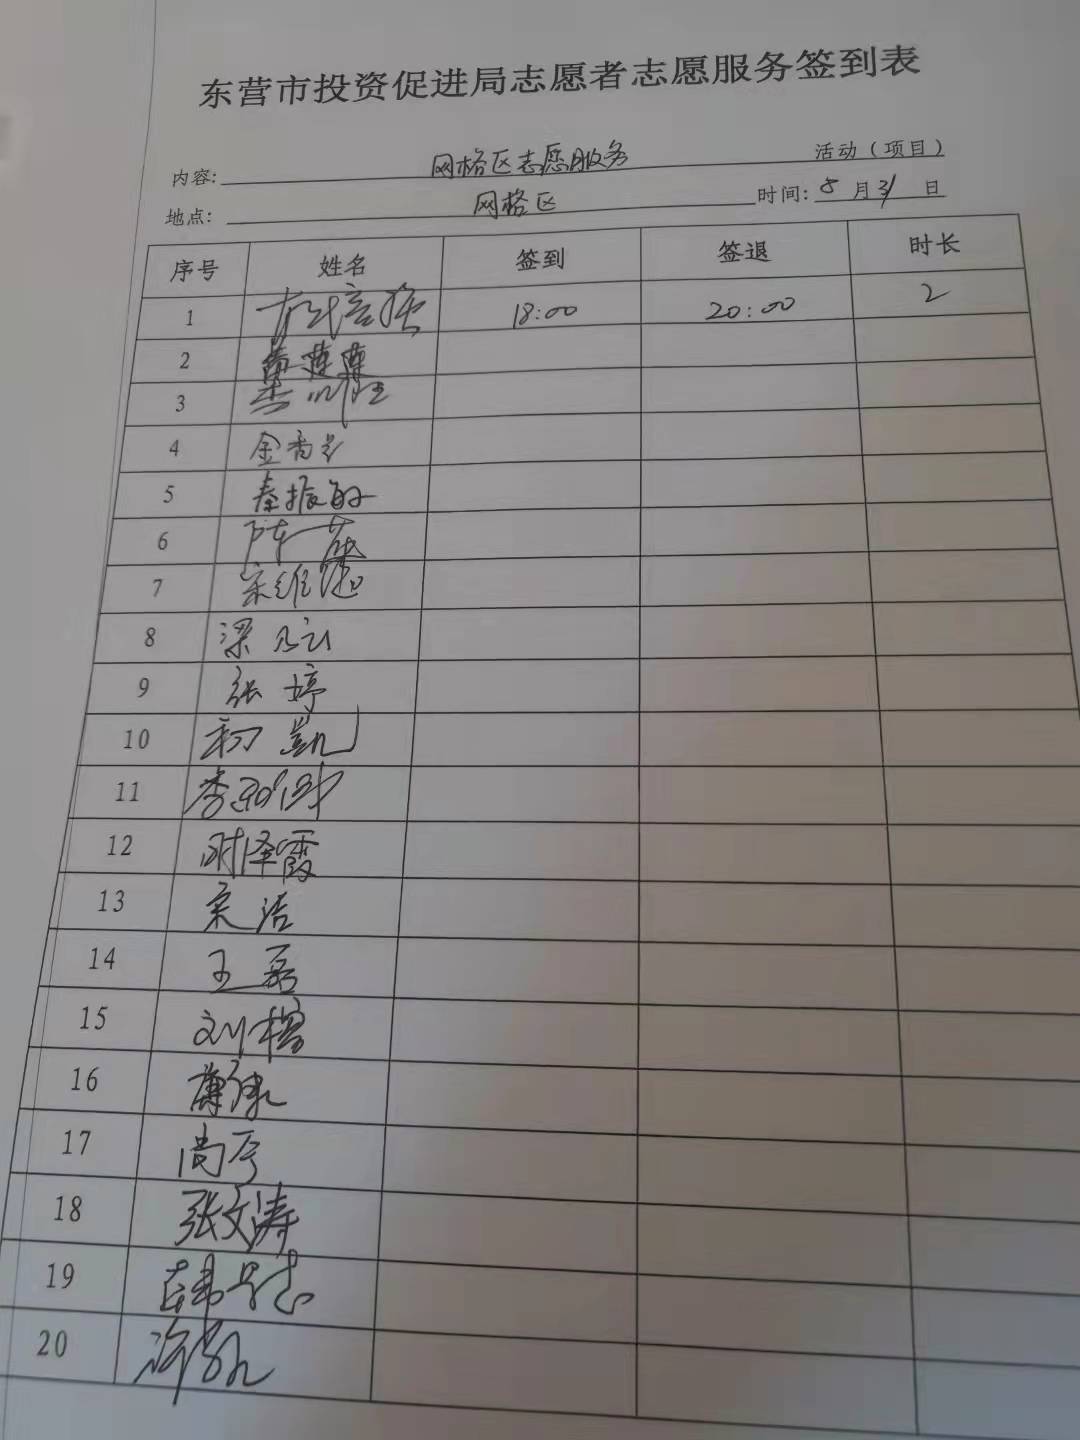 东营市投资促进局志愿者志愿服务签到表
内容: 网格区志愿服务 活动（项目）
地点: 网格区 时间: 5 月 31 日
序号 姓名 签到 签退 时长
1 18:00 20:00 2
2
3
4 金
5 秦振
6 陈
7 宋维
8 梁
9 张婷
10 初凯
11 李
12 时泽霞
13 宋洁
14 王磊
15 刘榕
16
17 尚
18 张文涛
19 韩
20 许